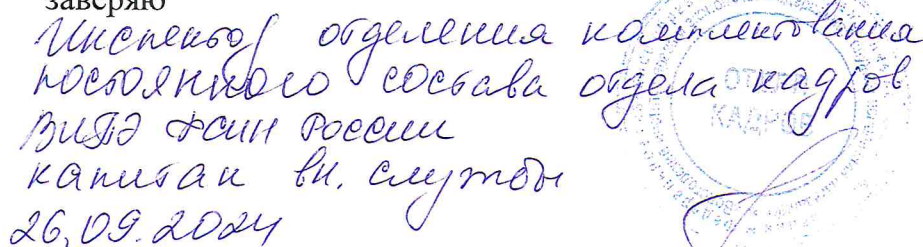 заверяю
Инспектор отделения комплектования
постоянного состава отдела кадров
ВИПЭ ФСИН России
капитан вн. службы
26.09.2024
ОТДЕЛ
КАДРОВ